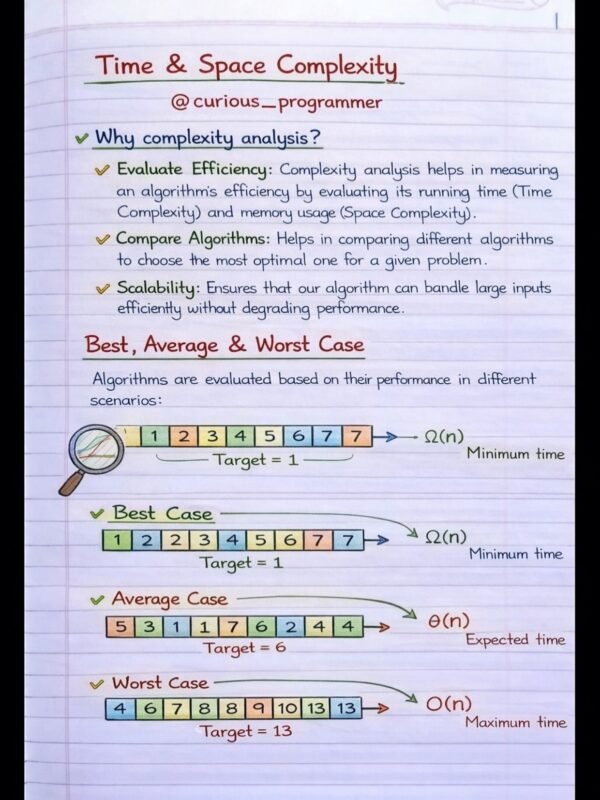 Time & Space Complexity
@curious_programmer
Why complexity analysis?
Evaluate Efficiency: Complexity analysis helps in measuring
an algorithm's efficiency by evaluating its running time (Time
Complexity) and memory usage (Space Complexity).
Compare Algorithms: Helps in comparing different algorithms
to choose the most optimal one for a given problem.
Scalability: Ensures that our algorithm can bandle large inputs
efficiently without degrading performance.
Best, Average & Worst Case
Algorithms are evaluated based on their performance in different
scenarios:
1 2 3 4 5 6 7 7 Ω(n)
Minimum time
Target = 1
Best Case
1 2 2 3 4 5 6 7 7 Ω(n)
Minimum time
Target = 1
Average Case
5 3 1 1 7 6 2 4 4 θ(n)
Expected time
Target = 6
Worst Case
4 6 7 8 8 9 10 13 13 O(n)
Maximum time
Target = 13